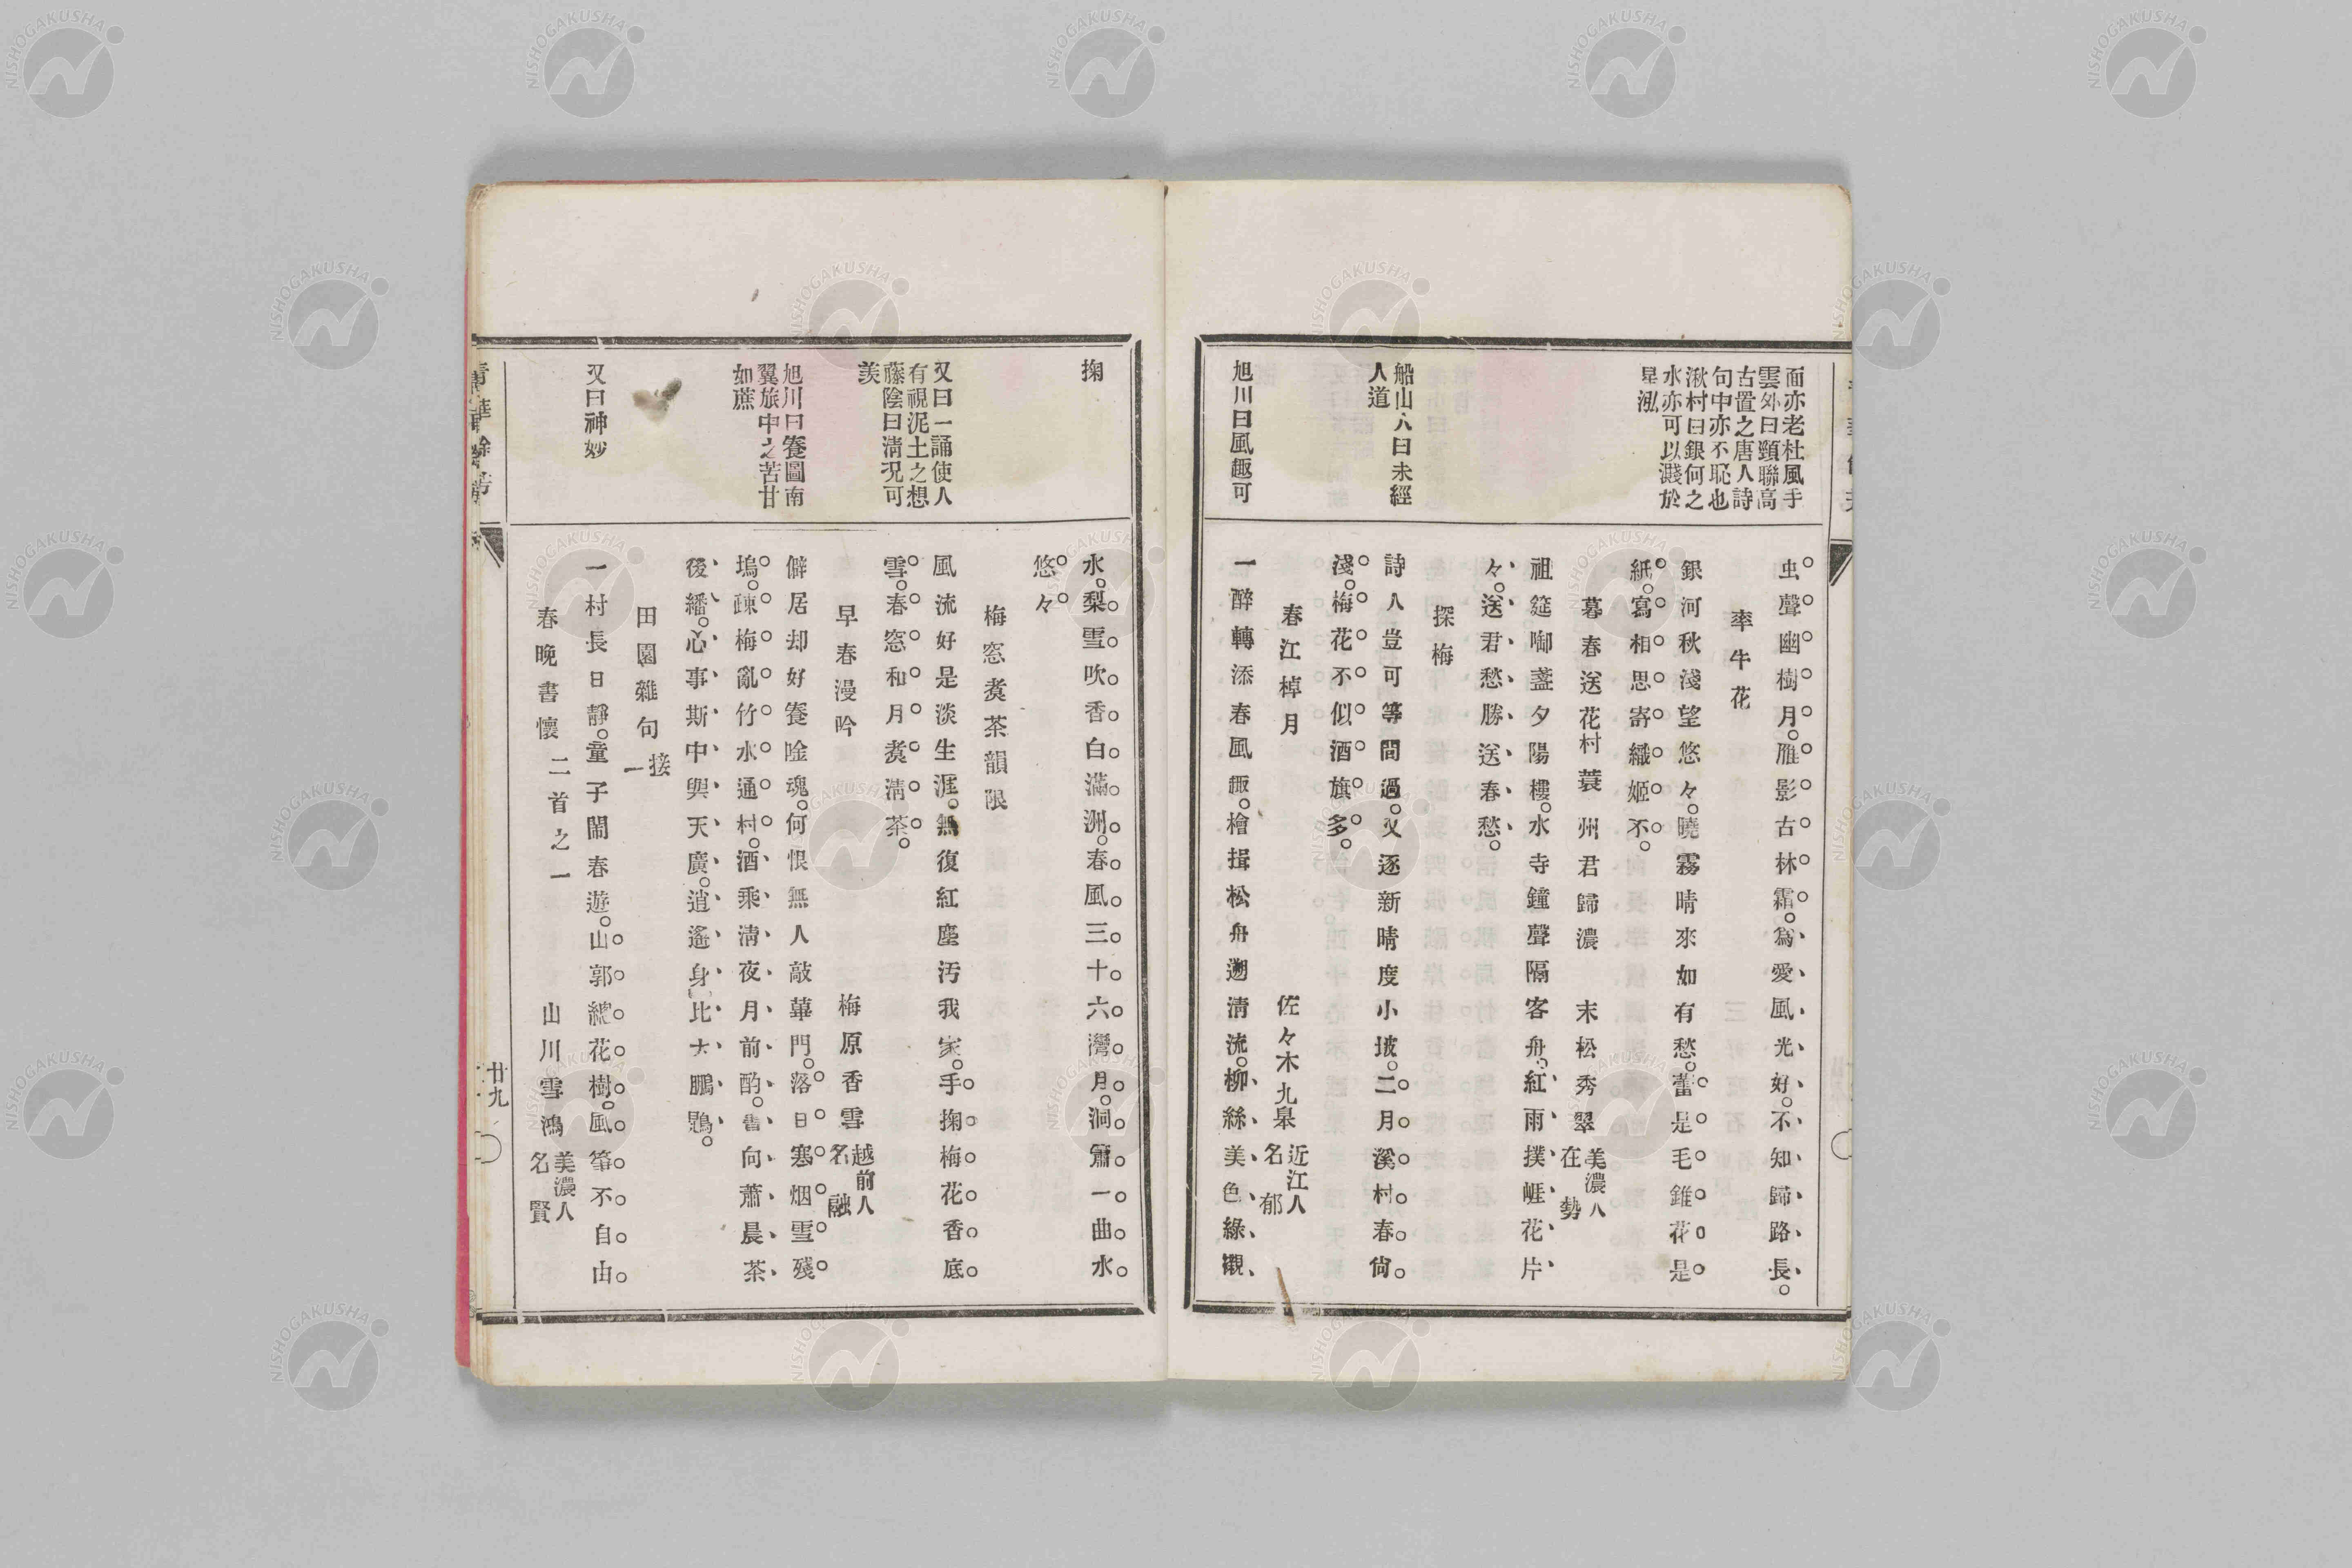 面亦老杜風手
雲外曰頸聯高
古置之唐人詩
句中亦不恥也
湫村曰銀何之
水亦可以濺於
星泓
船山人曰未經
人道
旭川曰風趣可
虫聲幽樹月。雁影古林霜。爲愛風光好。不知歸路長。
牽牛花
銀河秋淺望悠々。曉霧晴來如有愁。蕾是毛錐花是
紙。寫相思寄織姬不。
暮春送花村蓑州君歸濃 末松秀翠 美濃人
在勢
祖筵啣盞夕陽樓。水寺鐘聲隔客舟。紅雨撲崕花片
々。送君愁勝送春愁。
探梅
詩人豈可等閒過。又逐新晴度小坡。二月溪村春尙
淺。梅花不似酒旗多。
春江棹月 佐々木九皋 近江人
名郁
一醉轉添春風趣。檜揖松舟遡淸流。柳絲美色綠襯
掬
又曰一誦使人
有視泥土之想
藤陰曰淸況可
羨
旭川曰養圖南
翼旅中之苦甘
如蔗
又曰神妙
水。梨雪吹香白滿洲。春風三十六灣月。洞簫一曲水
悠々
梅窓煑茶韻限
風流好是淡生涯。無復紅塵汚我家。手掬梅花香底
雪。春窓和月煑淸茶。
早春漫吟 梅原香雪 越前人
名融
僻居却好養唫魂。何恨無人敲蓽門。落日寒烟雪殘
塢。疎梅亂竹水通村。酒乘淸夜月前酌。書向蕭晨茶
後繙。心事斯中與天廣。逍遙身比大鵬鶤。
田園雜句 接一
一村長日靜。童子鬧春遊。山郭總花樹。風箏不自由
春晩書懷 二首之一 山川雪鴻 美濃人
名賢
廿九